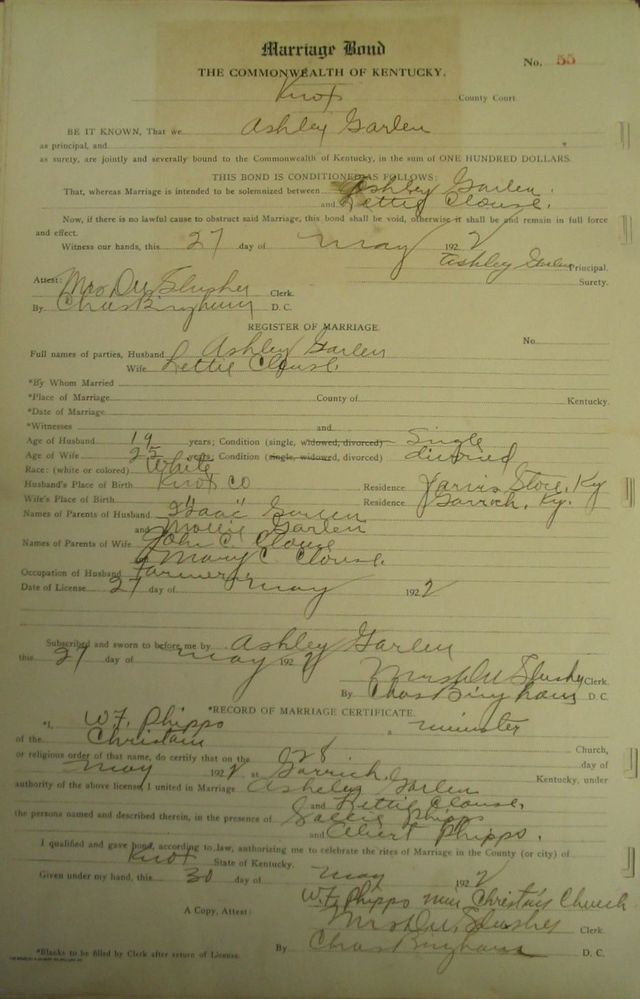 Marriage Bond
No. 55
THE COMMONWEALTH OF KENTUCKY.
Knox County Court.
BE IT KNOWN, That we Ashley Garlen
as principal, and
as surety, are jointly and severally bound to the Commonwealth of Kentucky, in the sum of ONE HUNDRED DOLLARS.
THIS BOND IS CONDITIONED AS FOLLOWS:
That, whereas Marriage is intended to be solemnized between Ashley Garlen.
and Lettie Clouse.
Now, if there is no lawful cause to obstruct said Marriage, this bond shall be void, otherwise it shall be and remain in full force
and effect.
Witness our hands, this 27 day of May 1922
Ashley Garlen Principal.
Surety.
Attest: Mrs D W Slusher Clerk.
By Chas Bingham D. C.
REGISTER OF MARRIAGE.
No.
Full names of parties, Husband Ashley Garlen
Wife Lettie Clouse.
*By Whom Married
*Place of Marriage County of Kentucky.
*Date of Marriage
*Witnesses and
Age of Husband 19 years; Condition (single, widowed, divorced) Single
Age of Wife 25 years; Condition (single, widowed, divorced) divorced
Race: (white or colored) White
Husband's Place of Birth Knox Co Residence Jarvis Store, Ky
Wife's Place of Birth " " Residence Garrich, Ky.
Names of Parents of Husband Isaac Garlen
and Mollie Garlen
Names of Parents of Wife John C. Clouse
& Mary C Clouse.
Occupation of Husband Farmer
Date of License 27 day of May 1922
Subscribed and sworn to before me by Ashley Garlen
this 27 day of May 1922
Mrs D W Slusher Clerk.
By Chas Bingham D. C.
*RECORD OF MARRIAGE CERTIFICATE.
*I, W.F. Phipps a minister
of the Christain Church,
or religious order of that name, do certify that on the 28 day of
May 1922 at Garrich, Kentucky, under
authority of the above license, I united in Marriage Ashley Garlen
and Lettie Clouse,
the persons named and described therein, in the presence of Sallie Phipps
and Albert Phipps.
I qualified and gave bond, according to law, authorizing me to celebrate the rites of Marriage in the County (or city) of
Knox State of Kentucky.
Given under my hand, this 30 day of May 1922
W.F. Phipps Christain Church
A Copy, Attest: Mrs D W Slusher Clerk.
*Blanks to be filled by Clerk after return of License. By Chas Bingham D. C.